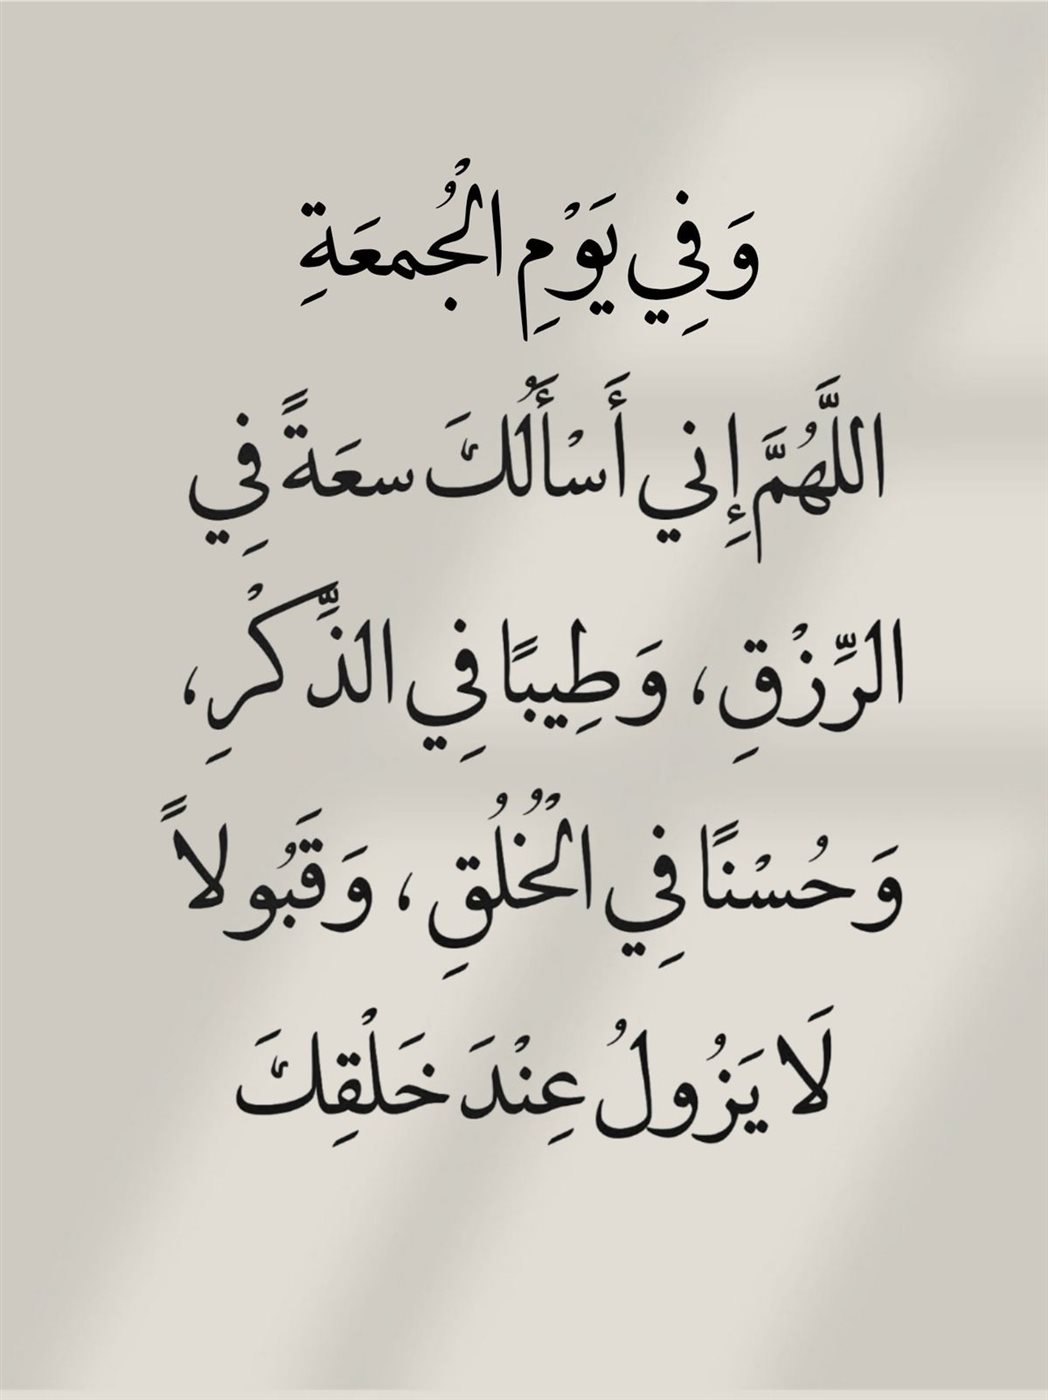 وَفِي يَوْمِ الْجُمعَةِ
اللَّهُمَّ إِني أَسْأَلُكَ سعَةً فِي
الرِّزْقِ، وَطِيبًا فِي الذِّكْرِ،
وَحُسْنًا فِي الْخُلُقِ، وَقَبُولاً
لَا يَزُولُ عِنْدَ خَلْقِكَ